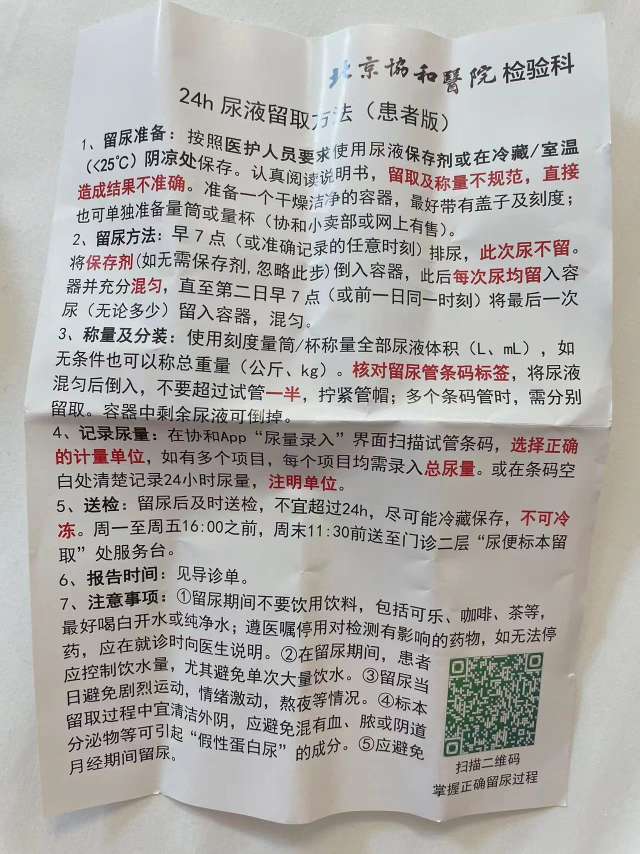 北京協和醫院 检验科
24h 尿液留取方法（患者版）
1、留尿准备：按照医护人员要求使用尿液保存剂或在冷藏/室温
（<25℃）阴凉处保存。认真阅读说明书，留取及称量不规范，直接
造成结果不准确。准备一个干燥洁净的容器，最好带有盖子及刻度；
也可单独准备量筒或量杯（协和小卖部或网上有售）。
2、留尿方法：早7点（或准确记录的任意时刻）排尿，此次尿不留。
将保存剂(如无需保存剂,忽略此步)倒入容器，此后每次尿均留入容
器并充分混匀，直至第二日早7点（或前一日同一时刻）将最后一次
尿（无论多少）留入容器，混匀。
3、称量及分装：使用刻度量筒/杯称量全部尿液体积（L、mL），如
无条件也可以称总重量（公斤、kg）。核对留尿管条码标签，将尿液
混匀后倒入，不要超过试管一半，拧紧管帽；多个条码管时，需分别
留取。容器中剩余尿液可倒掉。
4、记录尿量：在协和App“尿量录入”界面扫描试管条码，选择正确
的计量单位，如有多个项目，每个项目均需录入总尿量。或在条码空
白处清楚记录24小时尿量，注明单位。
5、送检：留尿后及时送检，不宜超过24h，尽可能冷藏保存，不可冷
冻。周一至周五16:00之前，周末11:30前送至门诊二层“尿便标本留
取”处服务台。
6、报告时间：见导诊单。
7、注意事项：①留尿期间不要饮用饮料，包括可乐、咖啡、茶等，
最好喝白开水或纯净水；遵医嘱停用对检测有影响的药物，如无法停
药，应在就诊时向医生说明。②在留尿期间，患者
应控制饮水量，尤其避免单次大量饮水。③留尿当
日避免剧烈运动，情绪激动，熬夜等情况。④标本
留取过程中宜清洁外阴，应避免混有血、脓或阴道
分泌物等可引起“假性蛋白尿”的成分。⑤应避免
月经期间留尿。
扫描二维码
掌握正确留尿过程